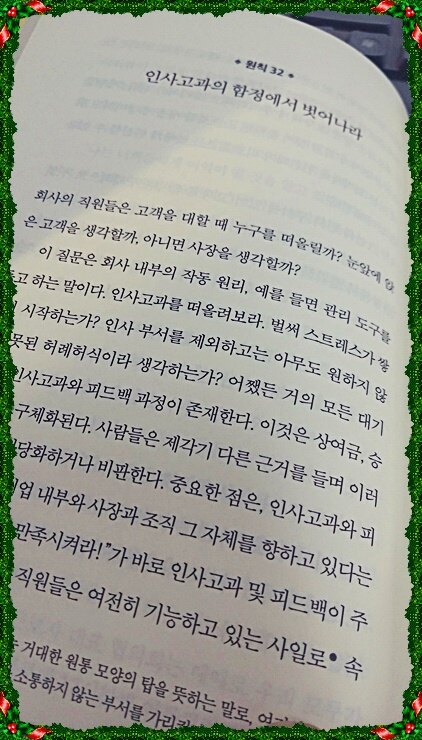 원칙 32
인사고과의 함정에서 벗어나라
회사의 직원들은 고객을 대할 때 누구를 떠올릴까? 눈앞에
은 고객을 생각할까, 아니면 사장을 생각할까?
이 질문은 회사 내부의 작동 원리, 예를 들면 관리 도구를
고 하는 말이다. 인사고과를 떠올려보라. 벌써 스트레스가 쌓
시작하는가? 인사 부서를 제외하고는 아무도 원하지 않
못된 허례허식이라 생각하는가? 어쨌든 거의 모든 대기
인사고과와 피드백 과정이 존재한다. 이것은 상여금, 승
구체화된다. 사람들은 제각기 다른 근거를 들며 이러
당화하거나 비판한다. 중요한 점은, 인사고과와 피
기업 내부와 사장과 조직 그 자체를 향하고 있다는
만족시켜라!”가 바로 인사고과 및 피드백이 주
직원들은 여전히 기능하고 있는 사일로• 속
거대한 원통 모양의 탑을 뜻하는 말로,
소통하지 않는 부서를 가리킨